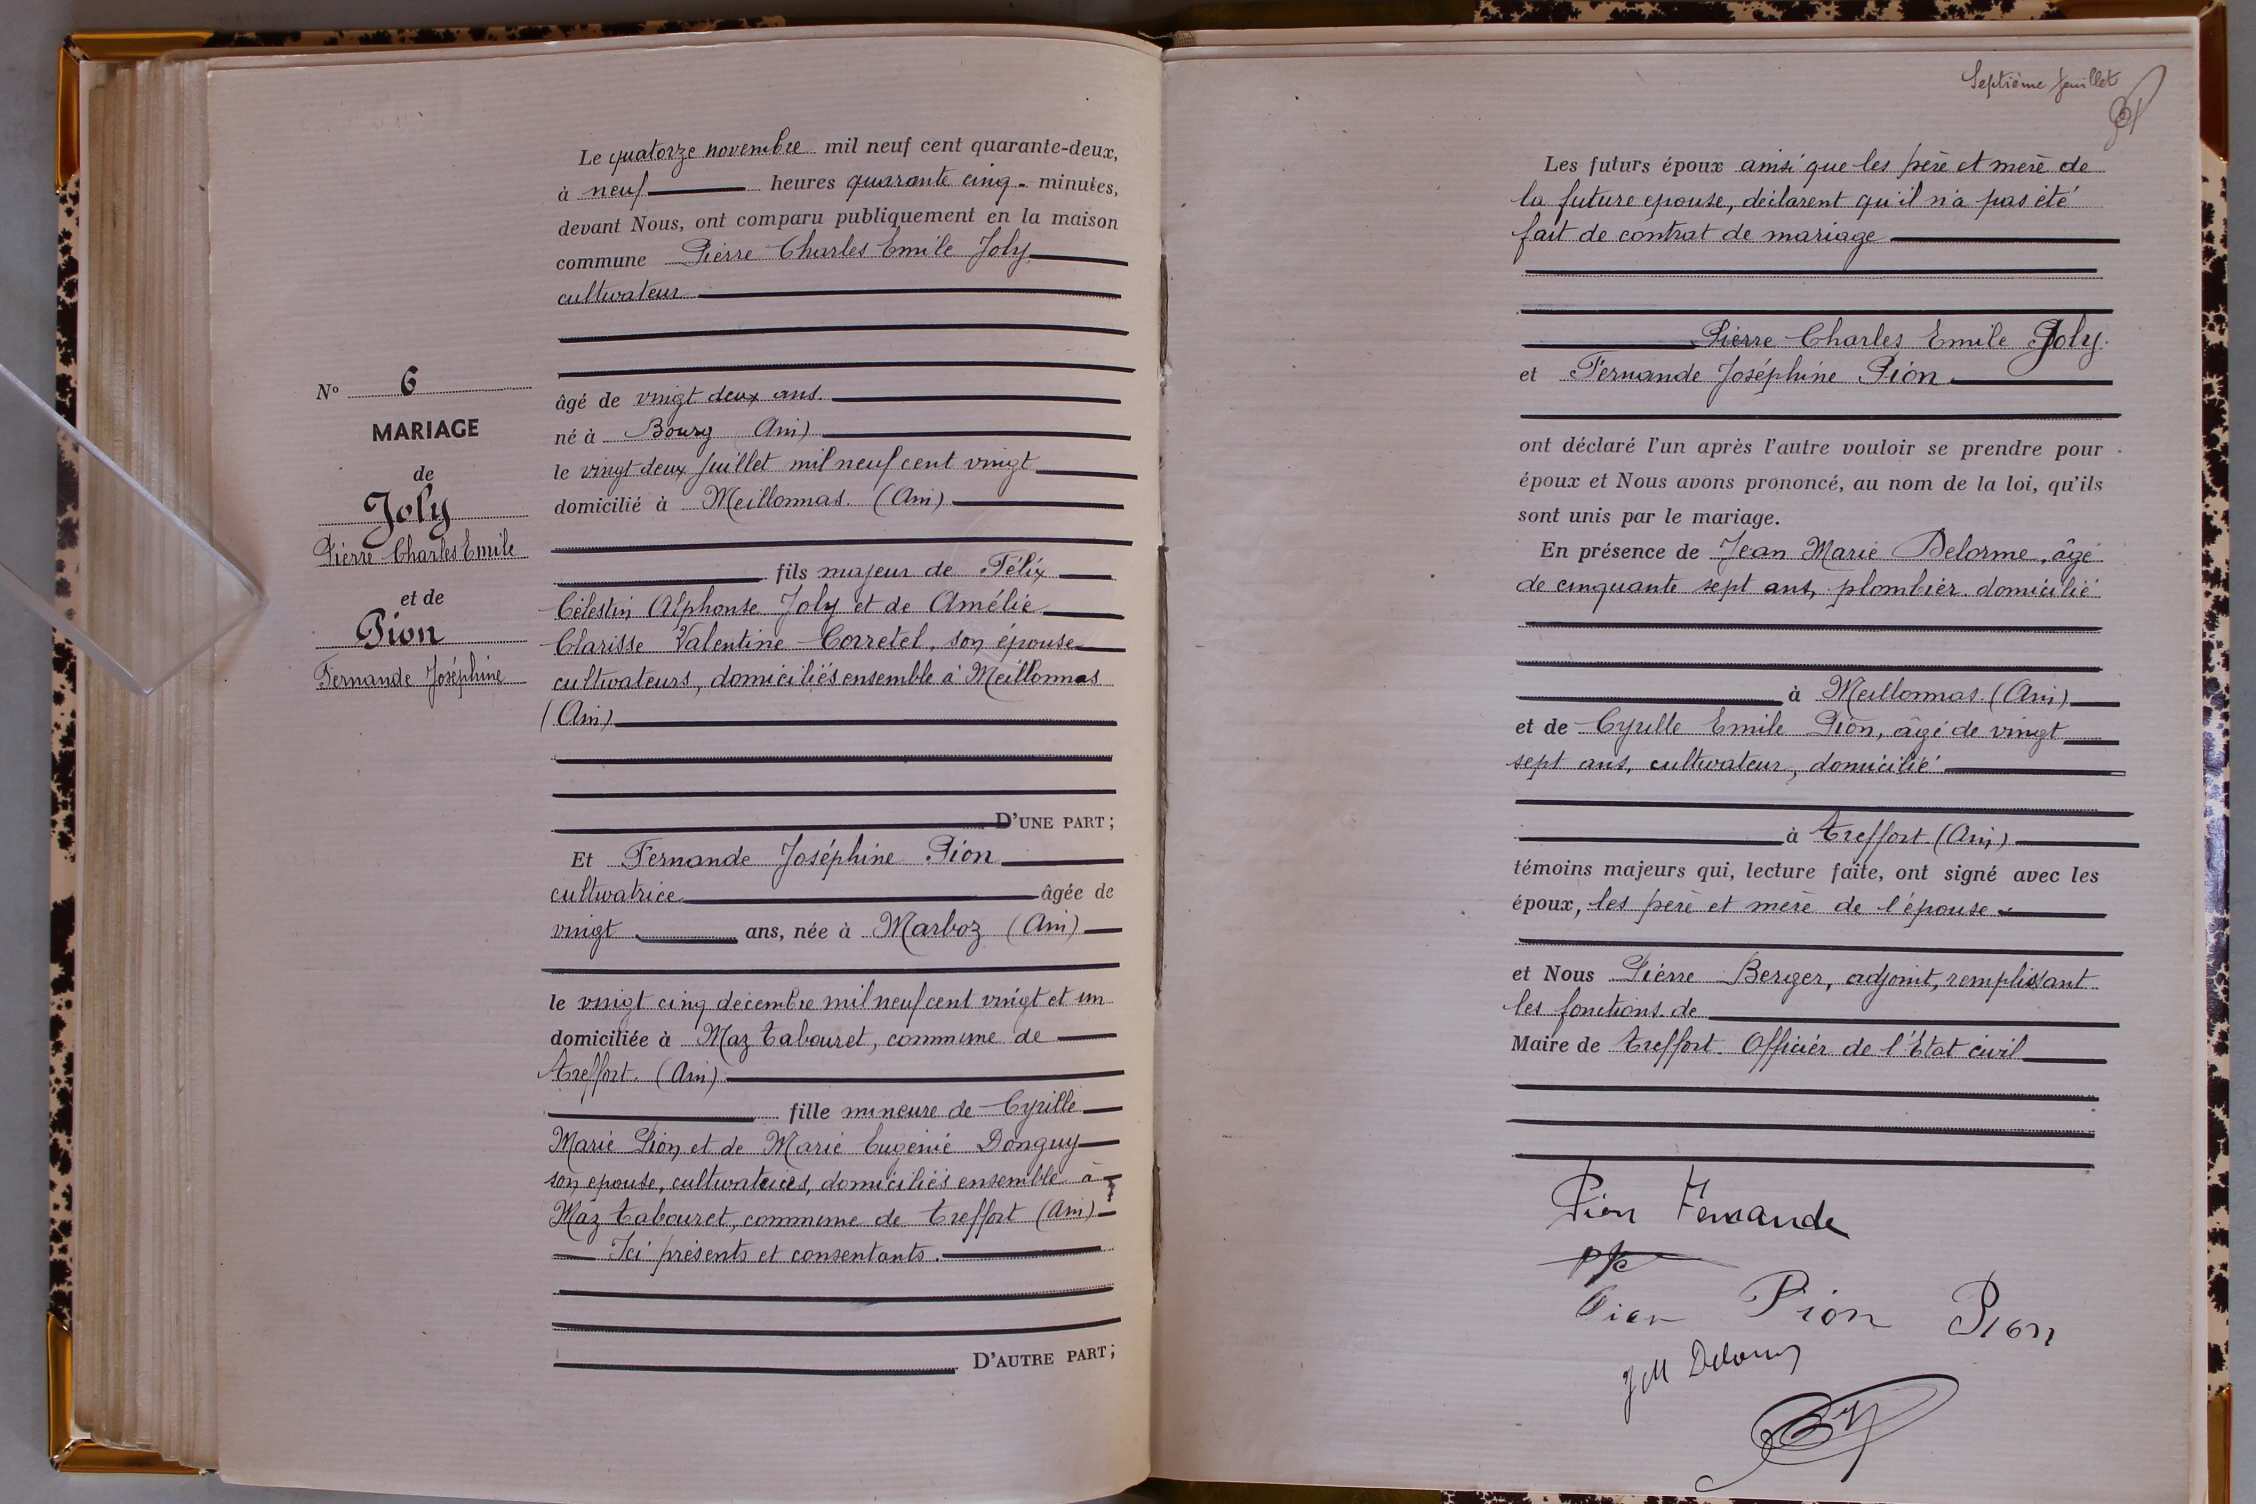 Le quatorze novembre mil neuf cent quarante-deux,
à neuf heures quarante cinq minutes,
devant Nous, ont comparu publiquement en la maison
commune Pierre Charles Emile Joly
cultivateur
âgé de vingt deux ans.
né à Bourg (Ain)
le vingt deux Juillet mil neuf cent vingt
domicilié à Meillonnas. (Ain)
fils majeur de Félix
Célestin Alphonse Joly et de Amélie
Clarisse Valentine Corretel, son épouse
cultivateurs, domiciliés ensemble à Meillonnas
(Ain)
D'UNE PART;
Et Fernande Joséphine Pion
cultivatrice âgée de
vingt ans, née à Marboz (Ain)
le vingt cinq décembre mil neuf cent vingt et un
domiciliée à Maz Tabouret, commune de
Treffort. (Ain)
fille mineure de Cyrille
Marie Pion et de Marie Eugénie Donguy
son epouse, cultivateurs, domiciliés ensemble à
Maz Tabouret, commune de Treffort (Ain)
Ici présents et consentants.
D'AUTRE PART;
N° 6
MARIAGE
de
Joly
Pierre Charles Emile
et de
Pion
Fernande Joséphine
Septième feuillet
Les futurs époux ainsi que les père et mère de
la future epouse, déclarent qu'il n'a pas été
fait de contrat de mariage
Pierre Charles Emile Joly.
et Fernande Joséphine Pion
ont déclaré l'un après l'autre vouloir se prendre pour
époux et Nous avons prononcé, au nom de la loi, qu'ils
sont unis par le mariage.
En présence de Jean Marie Delorme, âgé
de cinquante sept ans, plombier domicilié
à Meillonnas (Ain)
et de Cyrille Emile Pion, âgé de vingt
sept ans, cultivateur, domicilié
à Treffort. (Ain)
témoins majeurs qui, lecture faite, ont signé avec les
époux, les père et mère de l'épouse
et Nous Pierre Berger, adjoint, remplissant
les fonctions de
Maire de Treffort. Officier de l'Etat civil
Pion Fernande
Pion Pion Pion
JM Delorme